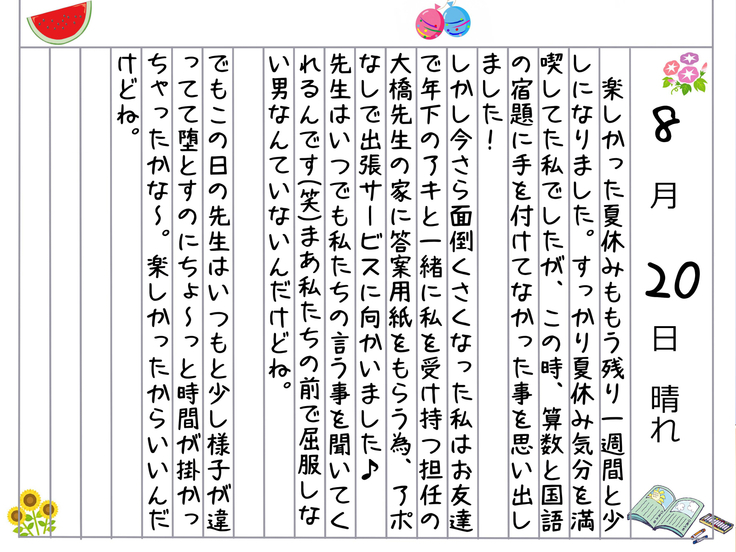 8月 20日 晴れ
楽しかった夏休みももう残り一週間と少
しになりました。すっかり夏休み気分を満
喫してた私でしたが、この時、算数と国語
の宿題に手を付けてなかった事を思い出し
ました!
しかし今さら面倒くさくなった私はお友達
で年下のアキと一緒に私を受け持つ担任の
大橋先生の家に答案用紙をもらう為、アポ
なしで出張サービスに向かいました♪
先生はいつでも私たちの言う事を聞いてく
れるんです(笑)まあ私たちの前で屈服しな
い男なんていないんだけどね。
でもこの日の先生はいつもと少し様子が違
ってて堕とすのにちょ〜っと時間が掛かっ
ちゃったかな〜。楽しかったからいいんだ
けどね。